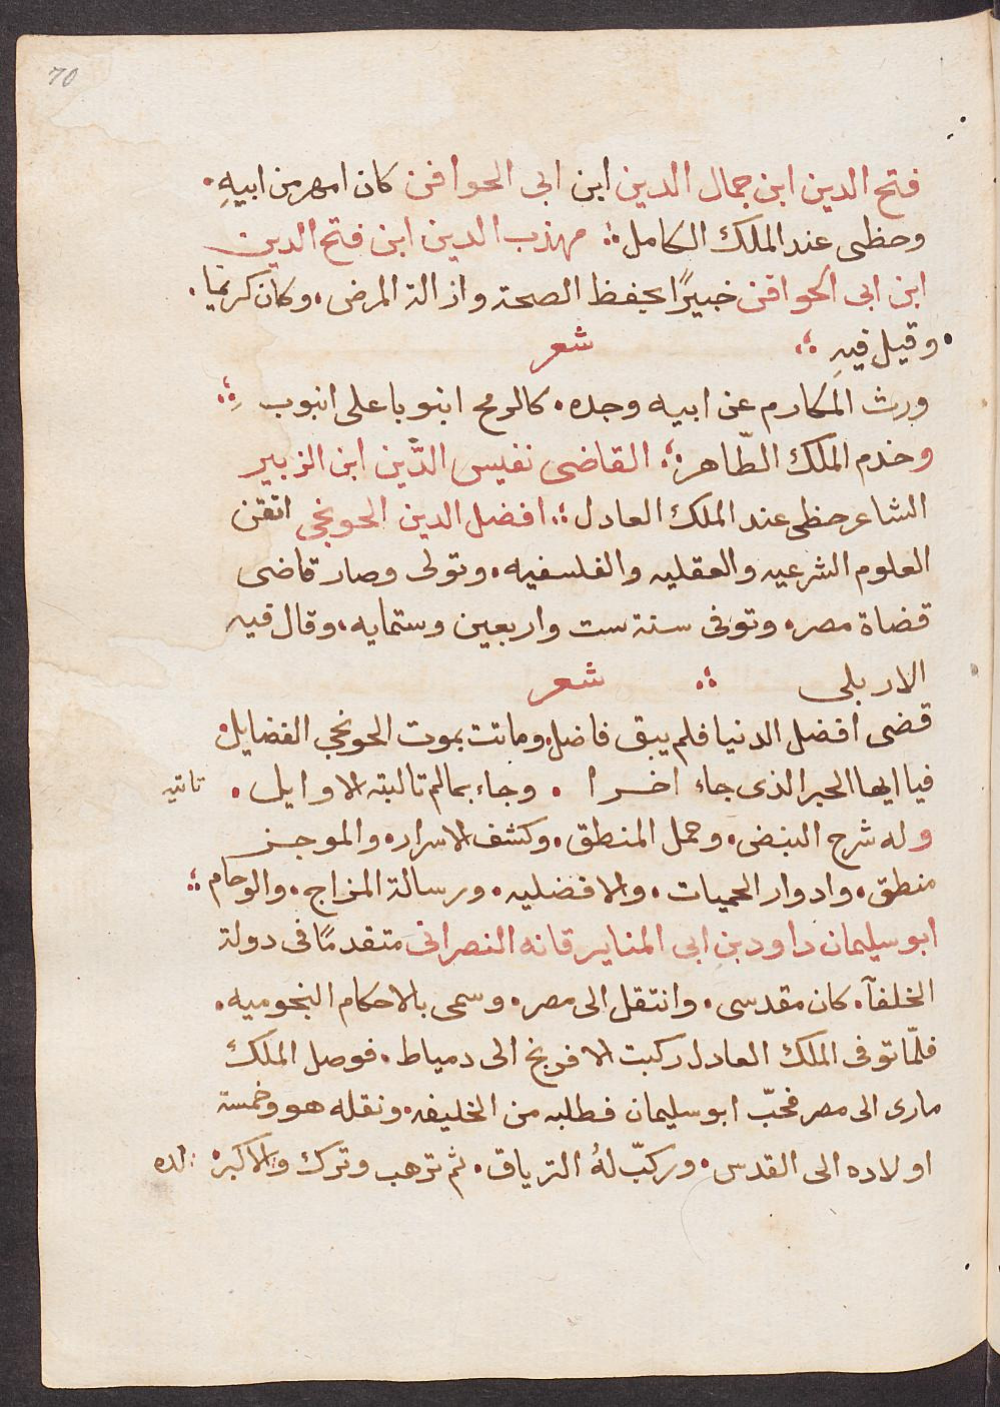 70
فتح الدين ابن جمال الدين ابن ابى الحوافر كان امهر من ابيهِ
وحظى عند الملك الكامل ؛ مهذب الدين ابن فتح الدين
ابن ابى الحوافر خبيرًا بحفظ الصحة وازالة المرض، وكان كريما
وقيل فيهِ ؛ شعر
ورث المكارم عن ابيه وجده، كالرمح انبوبا على انبوب ؛
وخدم الملك الظّاهر ؛ القاضى نفيس الدّين ابن الزبير
الشاعر حظى عند الملك العادل ؛ افضل الدين الخونجى اتقن
العلوم الشرعيه والعقليه والفلسفيه، وتولى وصار قاضى
قضاة مصر، وتوفى سنة ست واربعين وستمايه، وقال فيه
الاربلى ؛ شعر
قضى افضل الدنيا فلم يبق فاضل، وماتت بموت الخونجى الفضايل
فيا ايها الحبر الذى جاء اخرا ، وجاء بما لم تاليته الاوايل ، تاتيه
وله شرح النبض، وجمل المنطق، وكشف الاسرار، والموجز
منطق، وادوار الحميات، والافضليه، ورسالة المزاج، والوحام ؛
ابو سليمان داود بن ابى المنا بر قانه النصرانى متقدمًا فى دولة
الخلفآ، كان مقدسى، وانتقل الى مصر، وسمى بالاحكام النجوميه،
فلمّا توفى الملك العادل ركبت الافرنج الى دمياط، فوصل الملك
مارى الى مصر فحبّ ابو سليمان فطلبه من الخليفه، ونقله هو وخمسة
اولاده الى القدس، وركبّ لهُ الترياق، ثم ترهب وترك والاكبر، لده